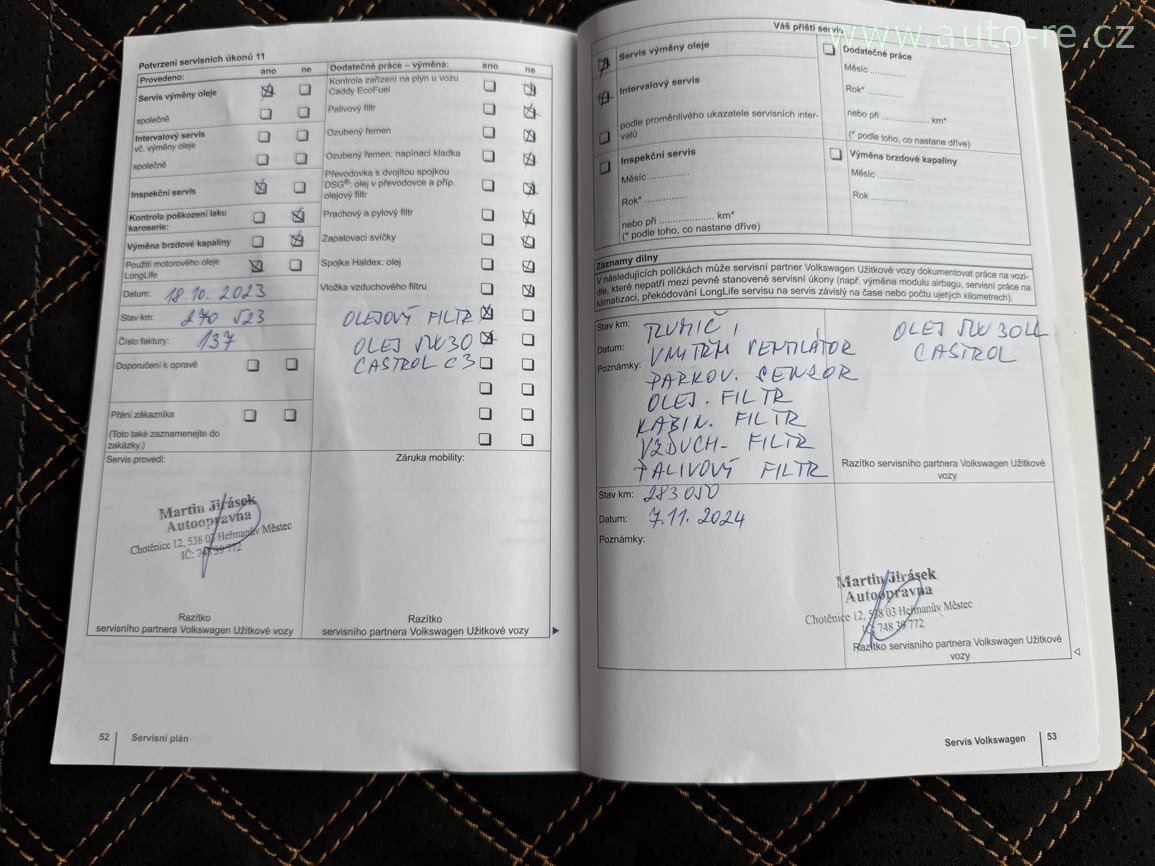 www.auto-re.cz
Potvrzení servisních úkonů 11
Provedeno: ano ne
Servis výměny oleje
společně
Intervalový servis
vč. výměny oleje
společně
Inspekční servis
Kontrola poškození laku
karoserie:
Výměna brzdové kapaliny
Použití motorového oleje
LongLife
Datum: 18.10.2023
Stav km: 270 523
Číslo faktury: 137
Doporučení k opravě
Přání zákazníka
(Toto také zaznamenejte do
zakázky.)
Servis provedl:
Martin Jirásek
Autoopravna
Chotěnice 12, 538 03 Heřmanův Městec
IČ: 748 39 772
Razítko
servisního partnera Volkswagen Užitkové vozy
Dodatečné práce – výměna: ano ne
Kontrola zařízení na plyn u vozu
Caddy EcoFuel
Palivový filtr
Ozubený řemen
Ozubený řemen: napínací kladka
Převodovka s dvojitou spojkou
DSG®: olej v převodovce a příp.
olejový filtr
Prachový a pylový filtr
Zapalovací svíčky
Spojka Haldex: olej
Vložka vzduchového filtru
OLEJOVÝ FILTR
OLEJ 5W30
CASTROL C3
Záruka mobility:
Razítko
servisního partnera Volkswagen Užitkové vozy
52 Servisní plán
Váš příští servis
Servis výměny oleje
Intervalový servis
podle proměnlivého ukazatele servisních inter-
valů
Inspekční servis
Měsíc ................
Rok* ................
nebo při ..................... km*
(* podle toho, co nastane dříve)
Dodatečné práce
Měsíc ..............
Rok* ..............
nebo při .................. km*
(* podle toho, co nastane dříve)
Výměna brzdové kapaliny
Měsíc ..............
Rok ..............
Záznamy dílny
V následujících políčkách může servisní partner Volkswagen Užitkové vozy dokumentovat práce na vozi-
dle, které nepatří mezi pevně stanovené servisní úkony (např. výměna modulu airbagu, servisní práce na
klimatizaci, překódování LongLife servisu na servis závislý na čase nebo počtu ujetých kilometrech).
Stav km: TLUMIČ,
Datum: VNITŘNÍ VENTILÁTOR
Poznámky: PARKOV. SENSOR
OLEJ. FILTR
KABIN. FILTR
VZDUCH- FILTR
PALIVOVÝ FILTR
OLEJ 5W30LL
CASTROL
Razítko servisního partnera Volkswagen Užitkové
vozy
Stav km: 283050
Datum: 7.11.2024
Poznámky:
Martin Jirásek
Autoopravna
Chotěnice 12, 538 03 Heřmanův Městec
IČ: 748 39 772
Razítko servisního partnera Volkswagen Užitkové
vozy
Servis Volkswagen 53